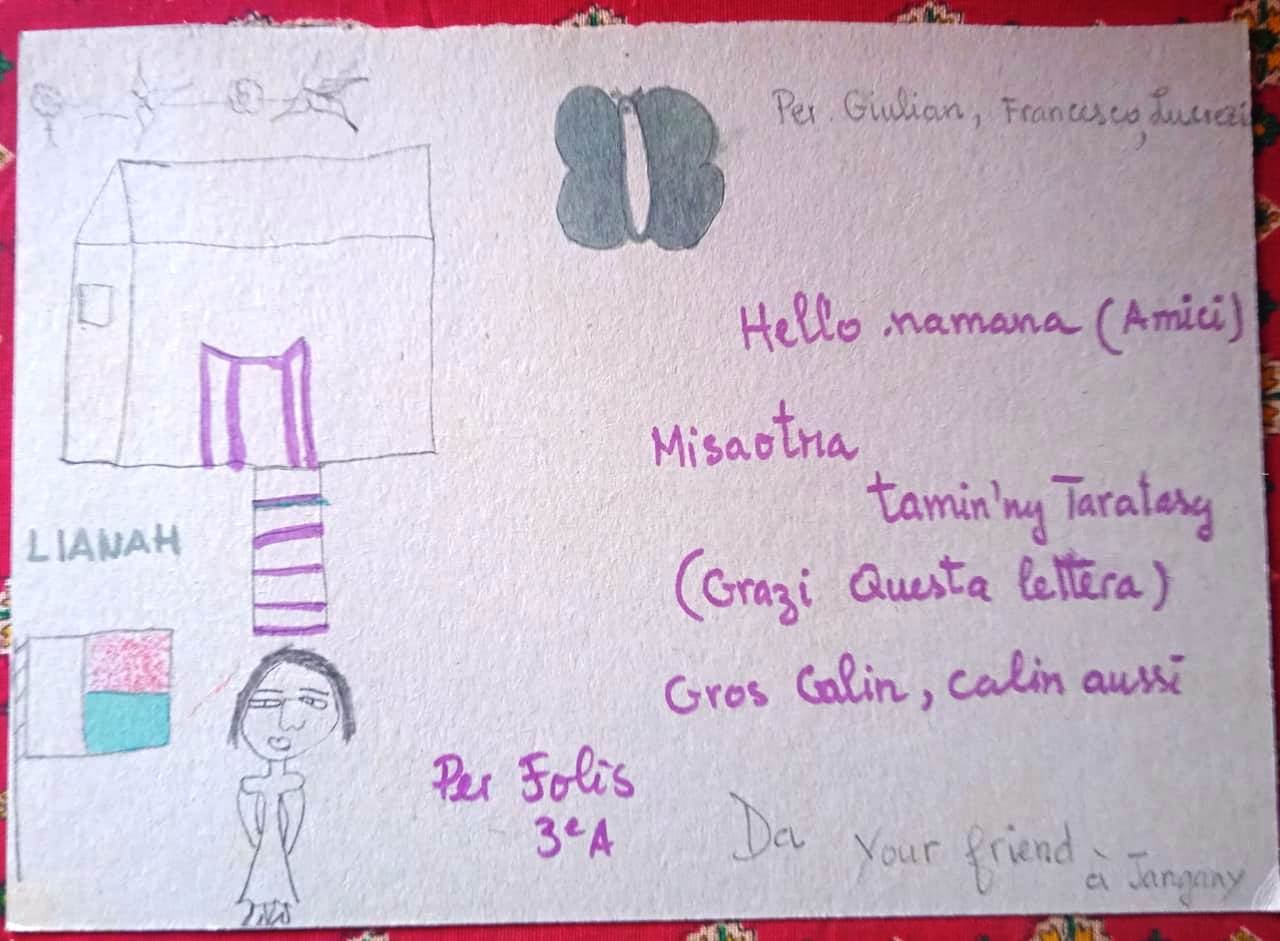 Per Giulian, Francesco, Lucrezi
Hello namana (Amici)
Misaotra
tamin'ny Taratasy
(Grazi Questa lettera)
Gros Calin, calin aussi
LIANAH
Per Folis
3e A
Da your friend
à Jangany